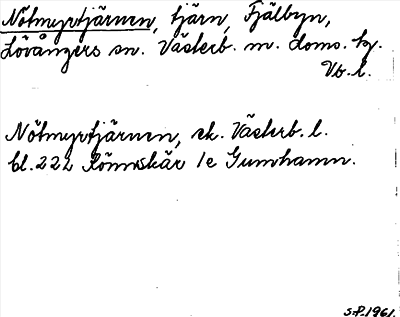 Nötmyrtjärnen, tjärn, Fjälbyn,
Lövångers sn. Västerb. m. doms. tg.
Vb. l.
Nötmyrtjärnen, ek. Västerb. l.
bl. 222 Rönnskär 1e Gumhamn.
S.P. 1961.